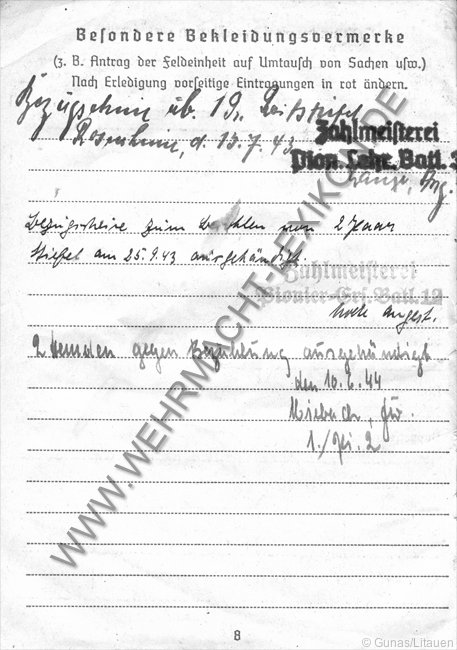 Besondere Bekleidungsvermerke
(z. B. Antrag der Feldeinheit auf Umtausch von Sachen usw.)
Nach Erledigung vorseitige Eintragungen in rot ändern.
Bezugschein üb. 1 P.
Rosenheim, d. 13.7.43
Zahlmeisterei
Pion. Lehr. Batl. 3
Bezugscheine zum von 2 Paar
Stiefel am 25.9.43 ausgehändigt.
Zahlmeisterei
Pionier-Ers. Batl. 12
Angest.
2 Hemden gegen Bezahlung ausgehändigt
den 10.6.44
1./Pi. 2
WWW.WEHRMACHT-LEXIKON.DE
8
© Gunas/Litauen